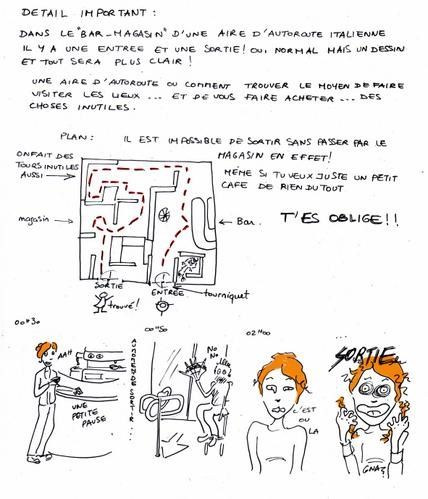 DETAIL IMPORTANT :
DANS LE "BAR_MAGASIN" D'UNE AIRE D'AUTOROUTE ITALIENNE
IL Y A UNE ENTREE ET UNE SORTIE! OUI, NORMAL MAIS UN DESSIN
ET TOUT SERA PLUS CLAIR!
UNE AIRE D'AUTOROUTE OU COMMENT TROUVER LE MOYEN DE FAIRE
VISITER LES LIEUX ... ET DE VOUS FAIRE ACHETER ... DES
CHOSES INUTILES.
PLAN : IL EST IMPOSSIBLE DE SORTIR SANS PASSER PAR LE
MAGASIN EN EFFET!
ON FAIT DES
TOURS INUTILES
AUSSI
MÊME SI TU VEUX JUSTE UN PETIT
CAFE DE RIEN DU TOUT
magasin
Bar.
T'ES OBLIGE!!
SORTIE
ENTREE
tourniquet
trouvé!
00"30
00"50
02"00
AAH
UNE
PETITE
PAUSE
NO
NO
C'EST
OU
LA
SORTIE
GNAZ